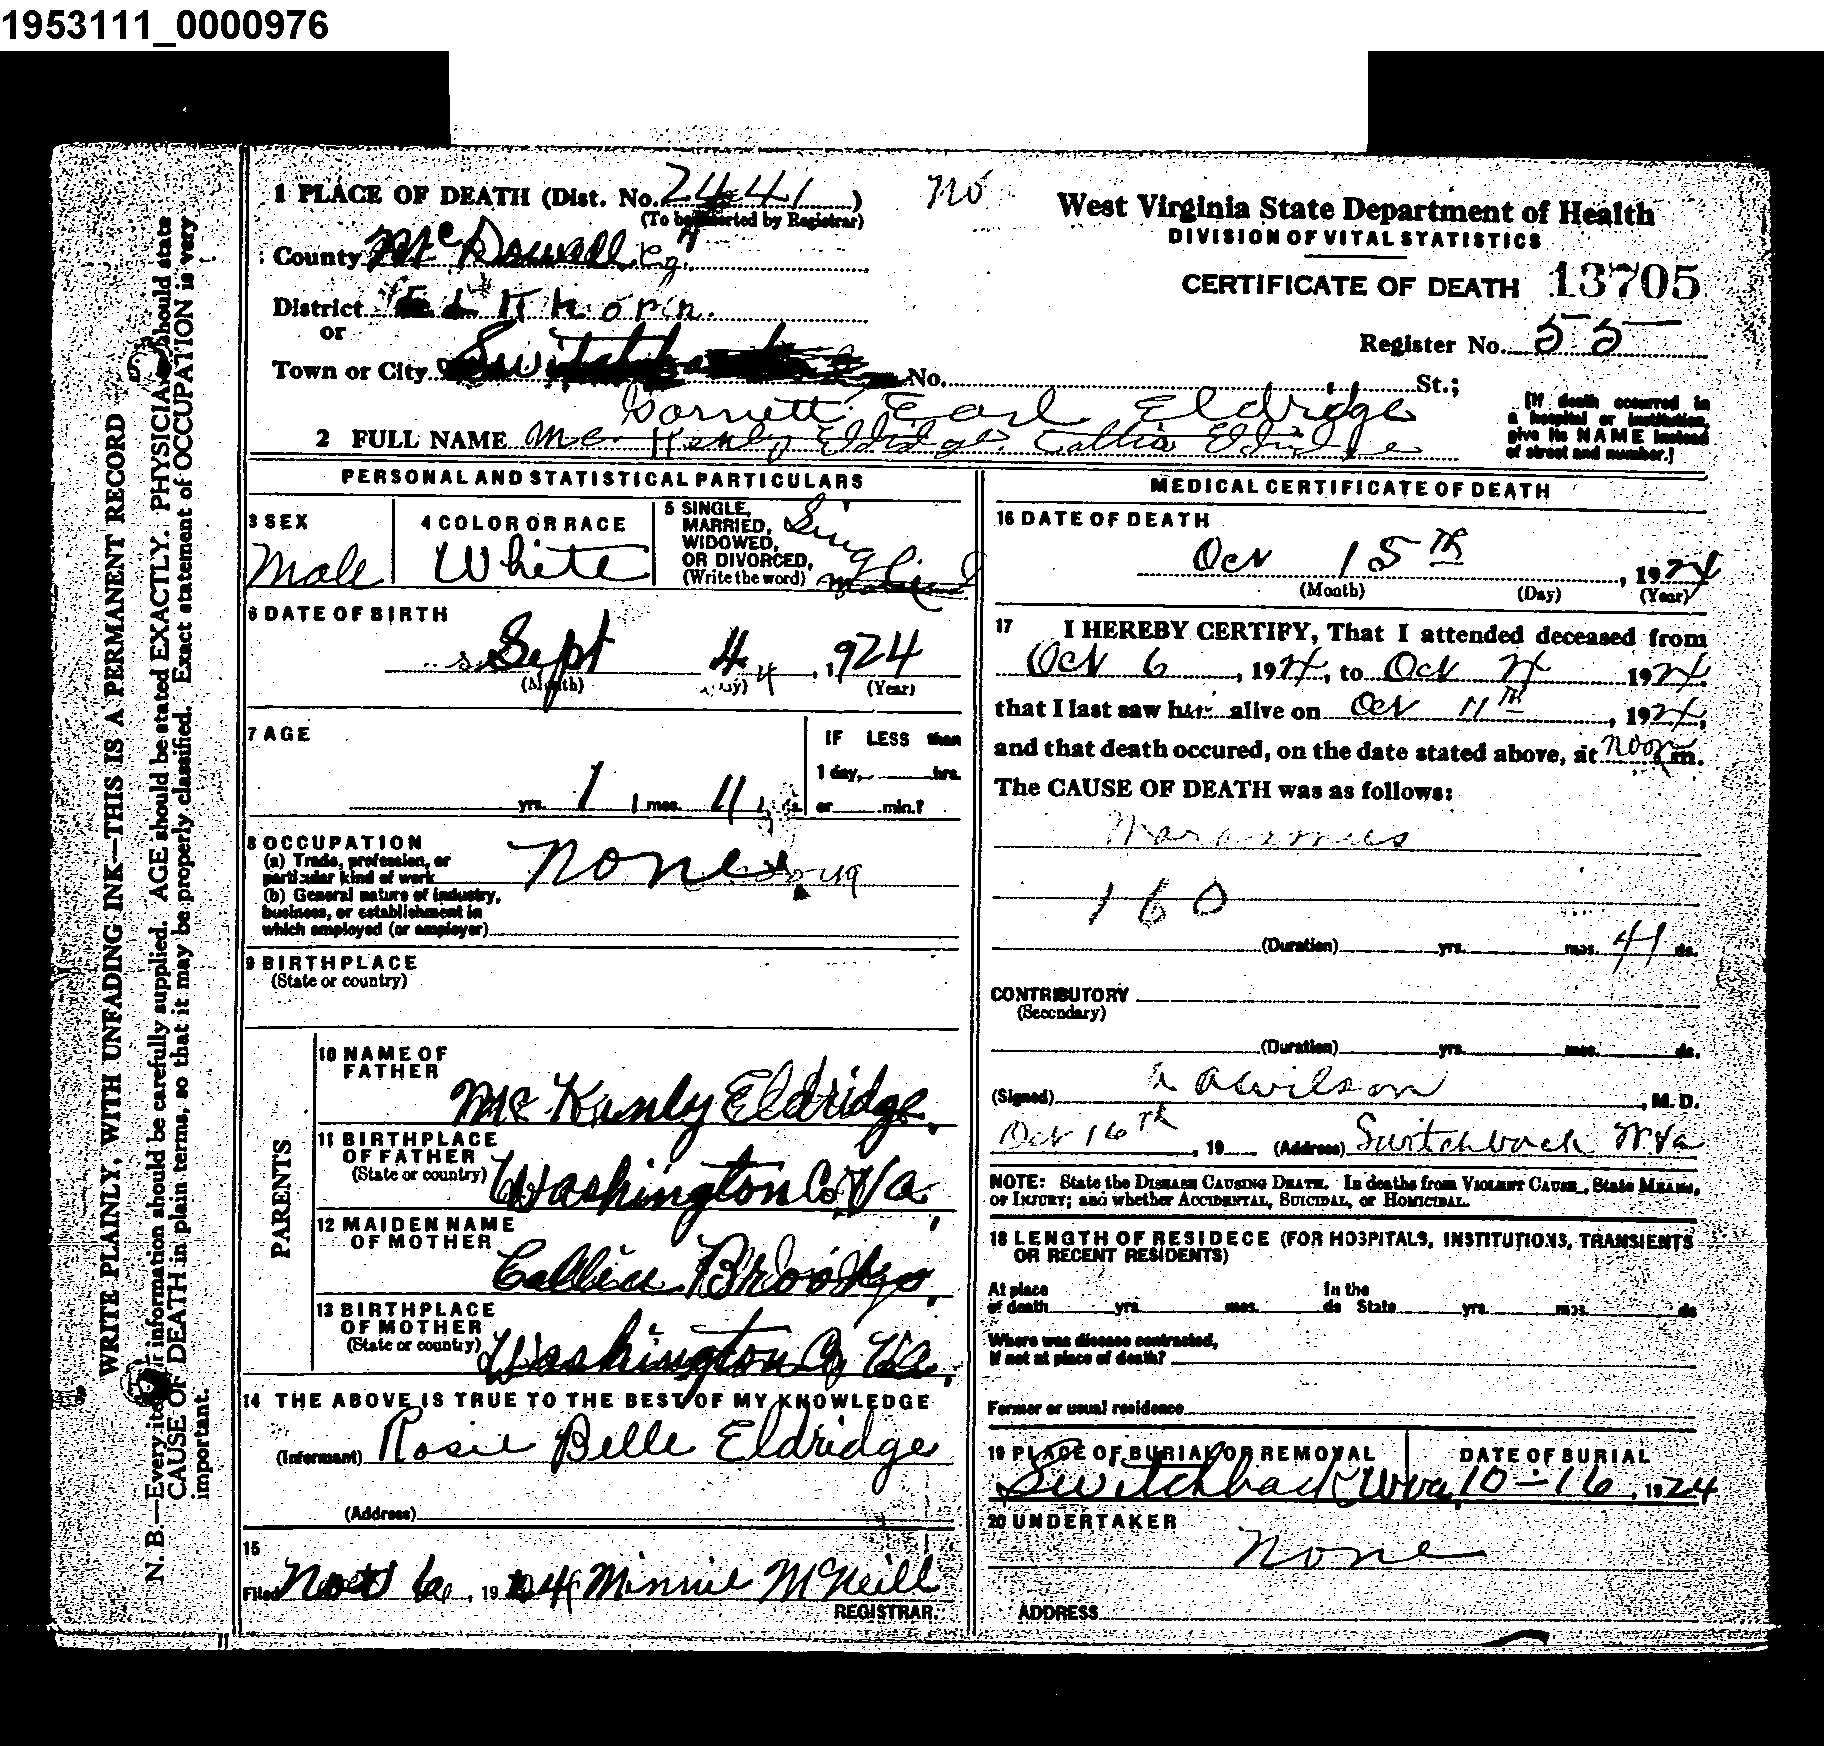 1953111_0000976
1 PLACE OF DEATH (Dist. No. 2441 )
(To be inserted by Registrar)
County McDowell Co
District Elkhorn
or
Town or City Switchback No. St.;
No
West Virginia State Department of Health
DIVISION OF VITAL STATISTICS
CERTIFICATE OF DEATH 13705
Register No. 55
[If death occurred in
a hospital or institution,
give its NAME instead
of street and number.]
Garnett Earl Eldridge
2 FULL NAME Mc Kenly Eldridge Callia Eldridge
PERSONAL AND STATISTICAL PARTICULARS
3 SEX
Male
4 COLOR OR RACE
White
5 SINGLE,
MARRIED,
WIDOWED,
OR DIVORCED,
(Write the word)
Single
6 DATE OF BIRTH
Sept 4 4 , 1924
(Month) (Day) (Year)
7 AGE
yrs. 1 mos. 11 ds.
IF LESS than
1 day, hrs.
or min.?
8 OCCUPATION
(a) Trade, profession, or
particular kind of work None
(b) General nature of industry,
business, or establishment in
which employed (or employer)
9 BIRTHPLACE
(State or country)
PARENTS
10 NAME OF
FATHER
Mc Kanly Eldridge
11 BIRTHPLACE
OF FATHER
(State or country) Washington Co, Va
12 MAIDEN NAME
OF MOTHER
Callia
13 BIRTHPLACE
OF MOTHER
(State or country) Washington Co, Va.
14 THE ABOVE IS TRUE TO THE BEST OF MY KNOWLEDGE
(Informant) Rosie Belle Eldridge
(Address)
15
Filed 6 , 1924 Minnie McNeill
REGISTRAR.
MEDICAL CERTIFICATE OF DEATH
16 DATE OF DEATH
Oct 15th , 1924
(Month) (Day) (Year)
17 I HEREBY CERTIFY, That I attended deceased from
Oct 6 , 1924, to Oct 1924
that I last saw him alive on Oct 11th , 1924,
and that death occured, on the date stated above, at noon m.
The CAUSE OF DEATH was as follows:
Marasmus
160
(Duration) yrs. mos. 41 ds.
CONTRIBUTORY
(Secondary)
(Duration) yrs. mos. ds.
(Signed) Wilson , M. D.
Oct 16th , 19 (Address) Switchback W. Va
NOTE: State the DISEASE CAUSING DEATH. In deaths from VIOLENT CAUSE, State MEANS,
OF INJURY; and whether ACCIDENTAL, SUICIDAL, or HOMICIDAL.
18 LENGTH OF RESIDECE (FOR HOSPITALS, INSTITUTIONS, TRANSIENTS
OR RECENT RESIDENTS)
At place
of death yrs. mos. ds
In the
State yrs. mos. ds
Where was disease contracted,
if not at place of death?
Former or usual residence
19 PLACE OF BURIAL OR REMOVAL
Switchback, W va,
DATE OF BURIAL
10-16, 1924
20 UNDERTAKER
None
ADDRESS
WRITE PLAINLY, WITH UNFADING INK—THIS IS A PERMANENT RECORD
N. B.—Every item of information should be carefully supplied. AGE should be stated EXACTLY. PHYSICIANS should state
CAUSE OF DEATH in plain terms, so that it may be properly classified. Exact statement of OCCUPATION is very
important.